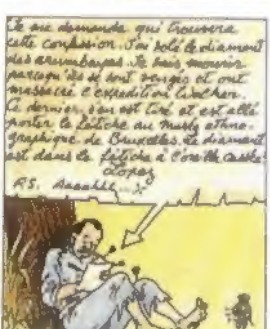 Je me demande qui trouvera
cette confession. J'ai volé le diamant
des arumbayas. Je vais mourir
parcequ'ils se sont vengés et ont
massacré l'expédition Walker.
Ce dernier, s'en est tiré et est allé
porter le fétiche au musée ethno-
graphique de Bruxelles. Le diamant
est dans le fétiche à l'oreille cassée
Lopez
P.S. Aaaahhh...